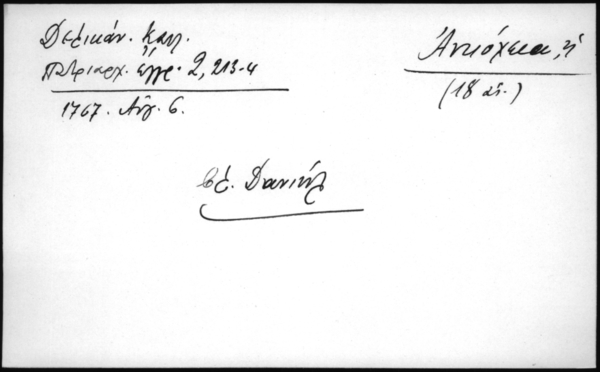 Δελικάν. Καλ.
Πατριαρχ. ἔγγρ. 2, 213-4
1767. Αὔγ. 6.
Ἀντιόχεια, ἡ
(18 αἰ.)
βλ. Δανιήλ